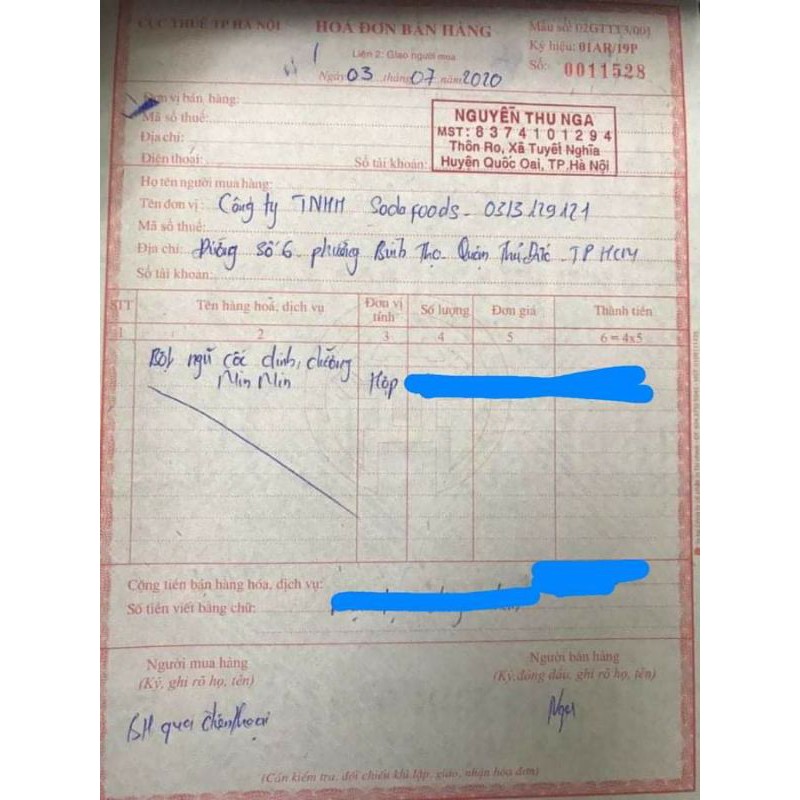 CỤC THUẾ TP HÀ NỘI
HOÁ ĐƠN BÁN HÀNG
Mẫu số: 02GTTT3/001
Liên 2: Giao người mua
Ký hiệu: 01AR/19P
Ngày 03 tháng 07 năm 2020
Số: 0011528
Đơn vị bán hàng:
Mã số thuế:
Địa chỉ:
Điện thoại: Số tài khoản:
NGUYỄN THU NGA
MST: 8374101294
Thôn Ro, Xã Tuyết Nghĩa
Huyện Quốc Oai, TP.Hà Nội
Họ tên người mua hàng:
Tên đơn vị: Công ty TNHH Soda foods - 0313129121
Mã số thuế:
Địa chỉ: Đường số 6 phường Bình Thọ - Quận Thủ Đức - TP HCM
Số tài khoản:
STT Tên hàng hoá, dịch vụ Đơn vị tính Số lượng Đơn giá Thành tiền
1 2 3 4 5 6 = 4x5
Bột ngũ cốc dinh dưỡng Hộp
Min Min
Cộng tiền bán hàng hóa, dịch vụ:
Số tiền viết bằng chữ:
Người mua hàng Người bán hàng
(Ký, ghi rõ họ, tên) (Ký, đóng dấu, ghi rõ họ, tên)
BH qua điện thoại Nga
(Cần kiểm tra, đối chiếu khi lập, giao, nhận hóa đơn)